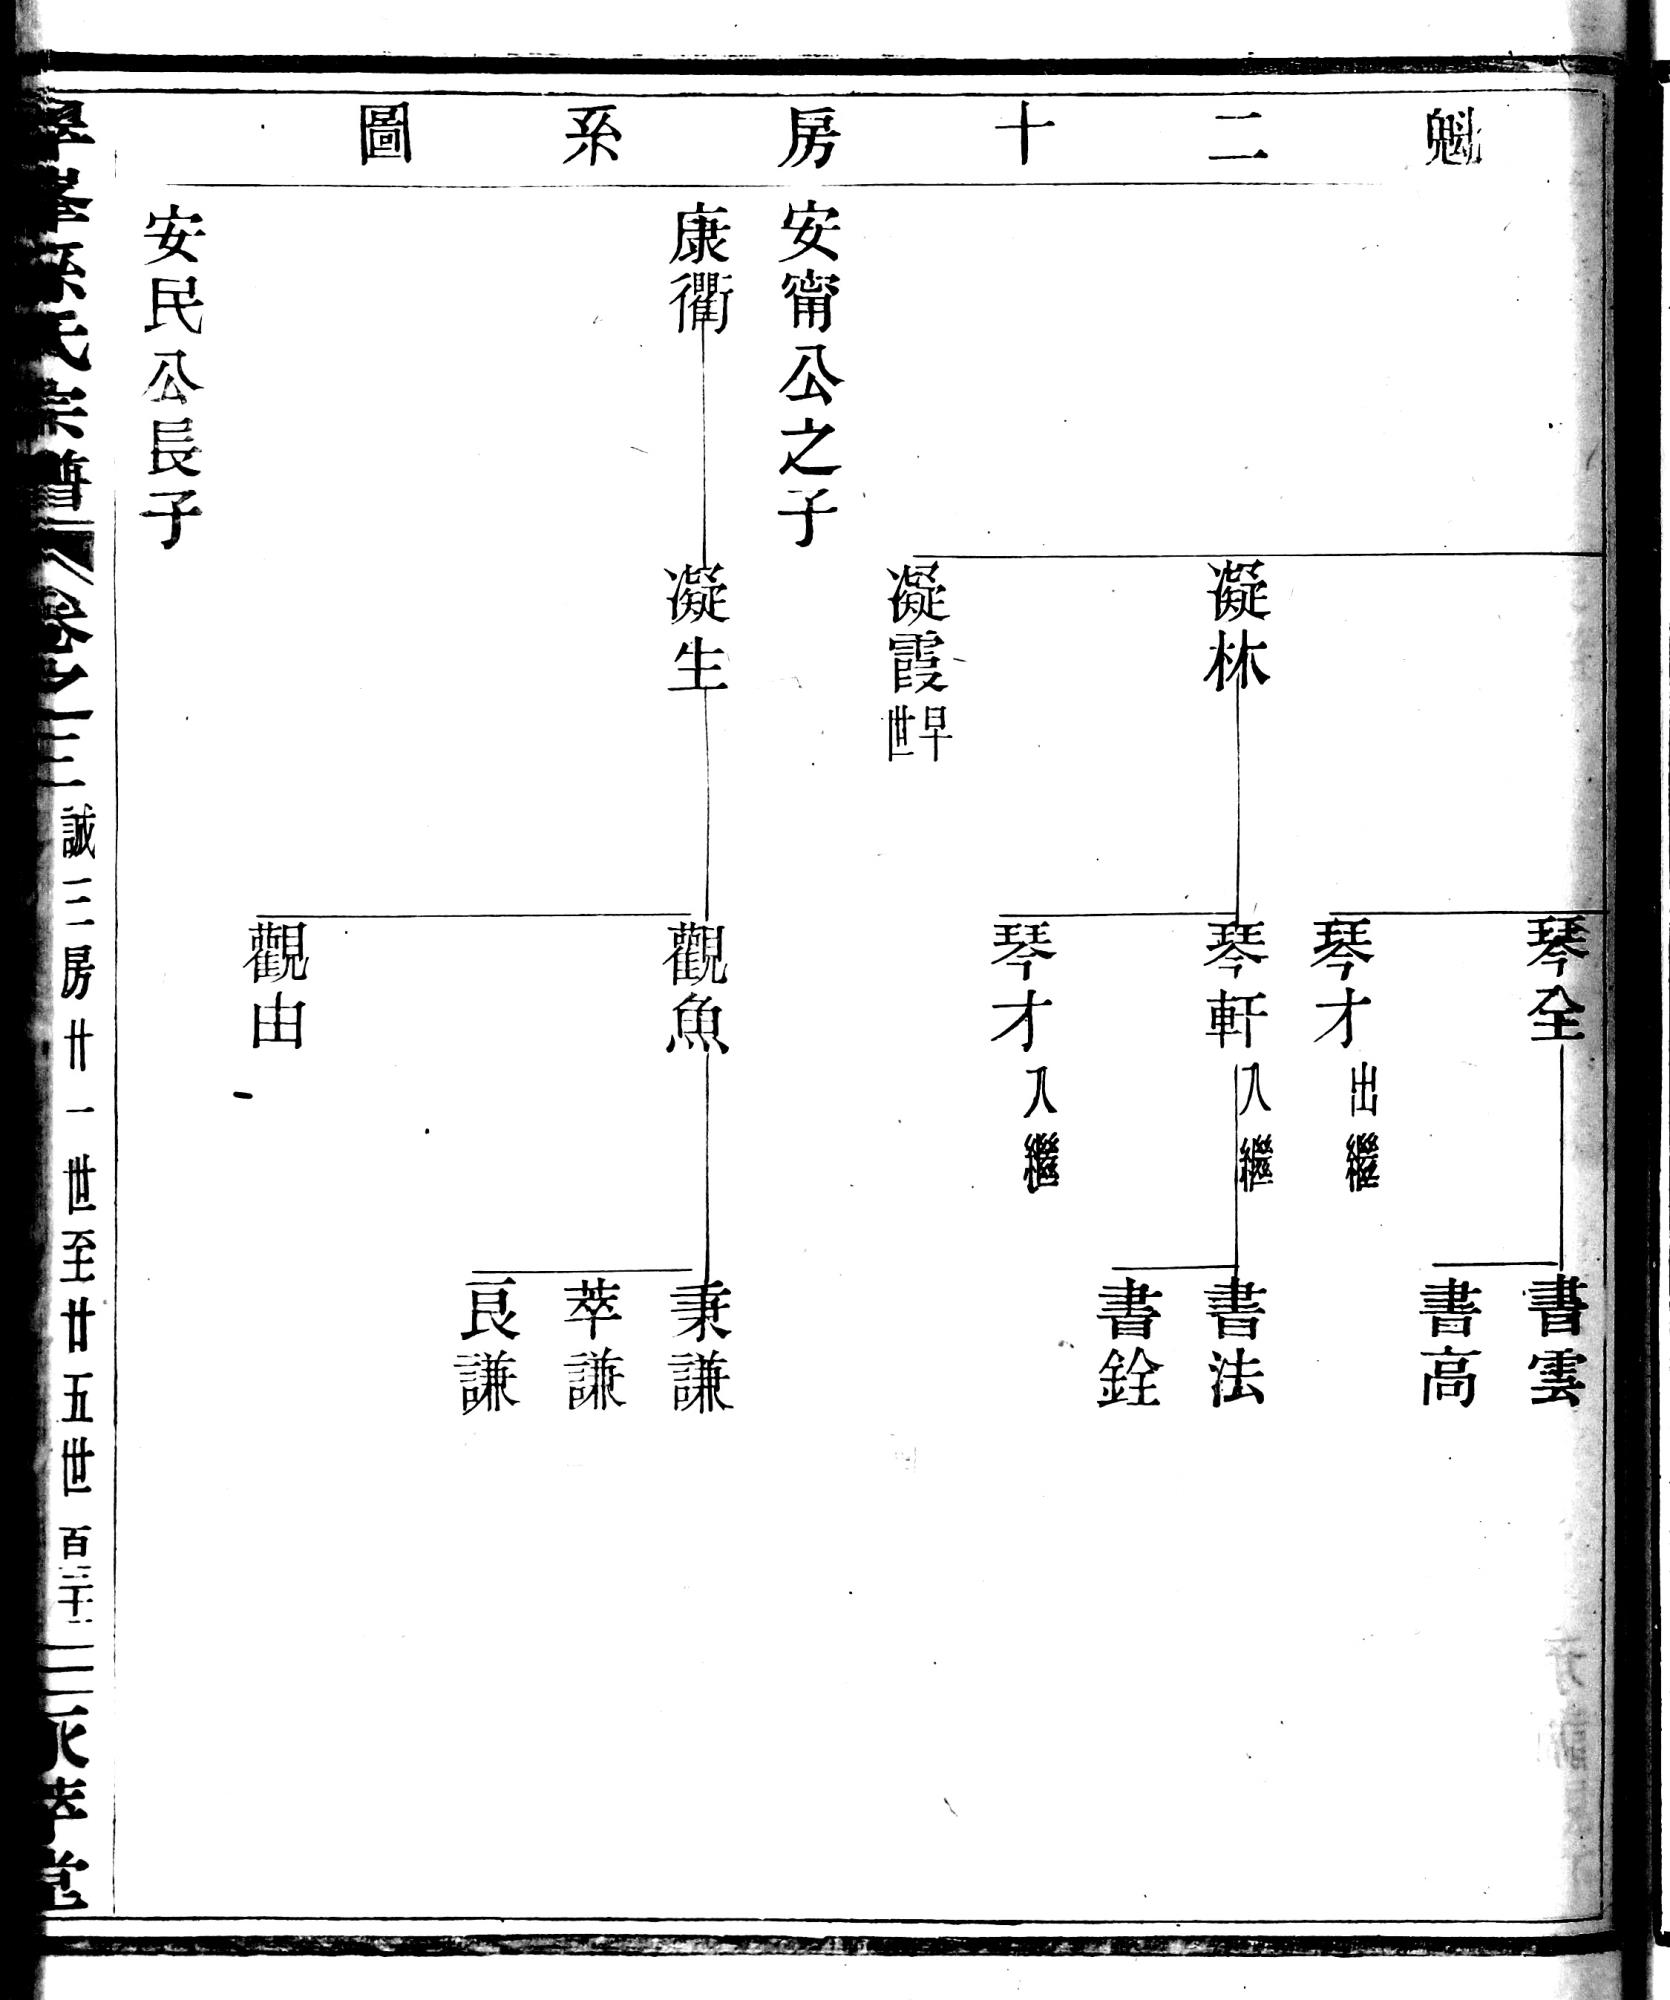 魁二十房系圖
琴全
書雲
書高
琴才 出繼
凝林
琴軒 入繼
書法
書銓
琴才 入繼
凝霞 早世
安甯公之子
康衢
凝生
觀魚
秉謙
萃謙
良謙
觀由
安民公長子
氏宗譜
卷之三
誠三房廿一世至廿五世
萃堂